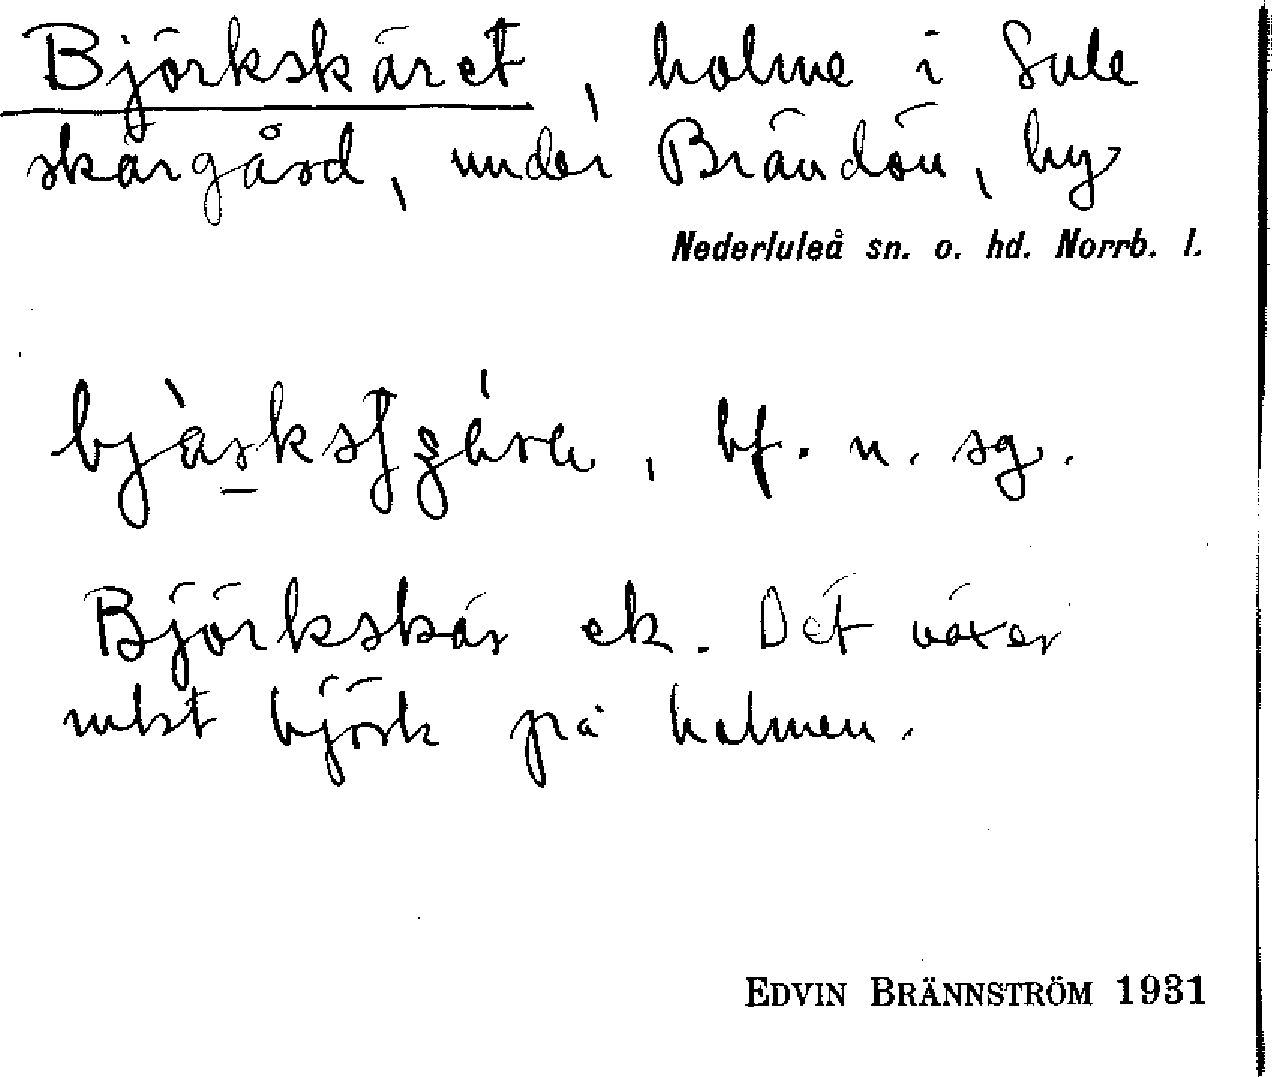 Björkskäret, holme i Lule
skärgård, under Brändön, by
Nederluleå sn. o. hd. Norrb. l.
bf. n. sg.
Björkskär ek. Det växer
mkt björk på holmen.
EDVIN BRÄNNSTRÖM 1931